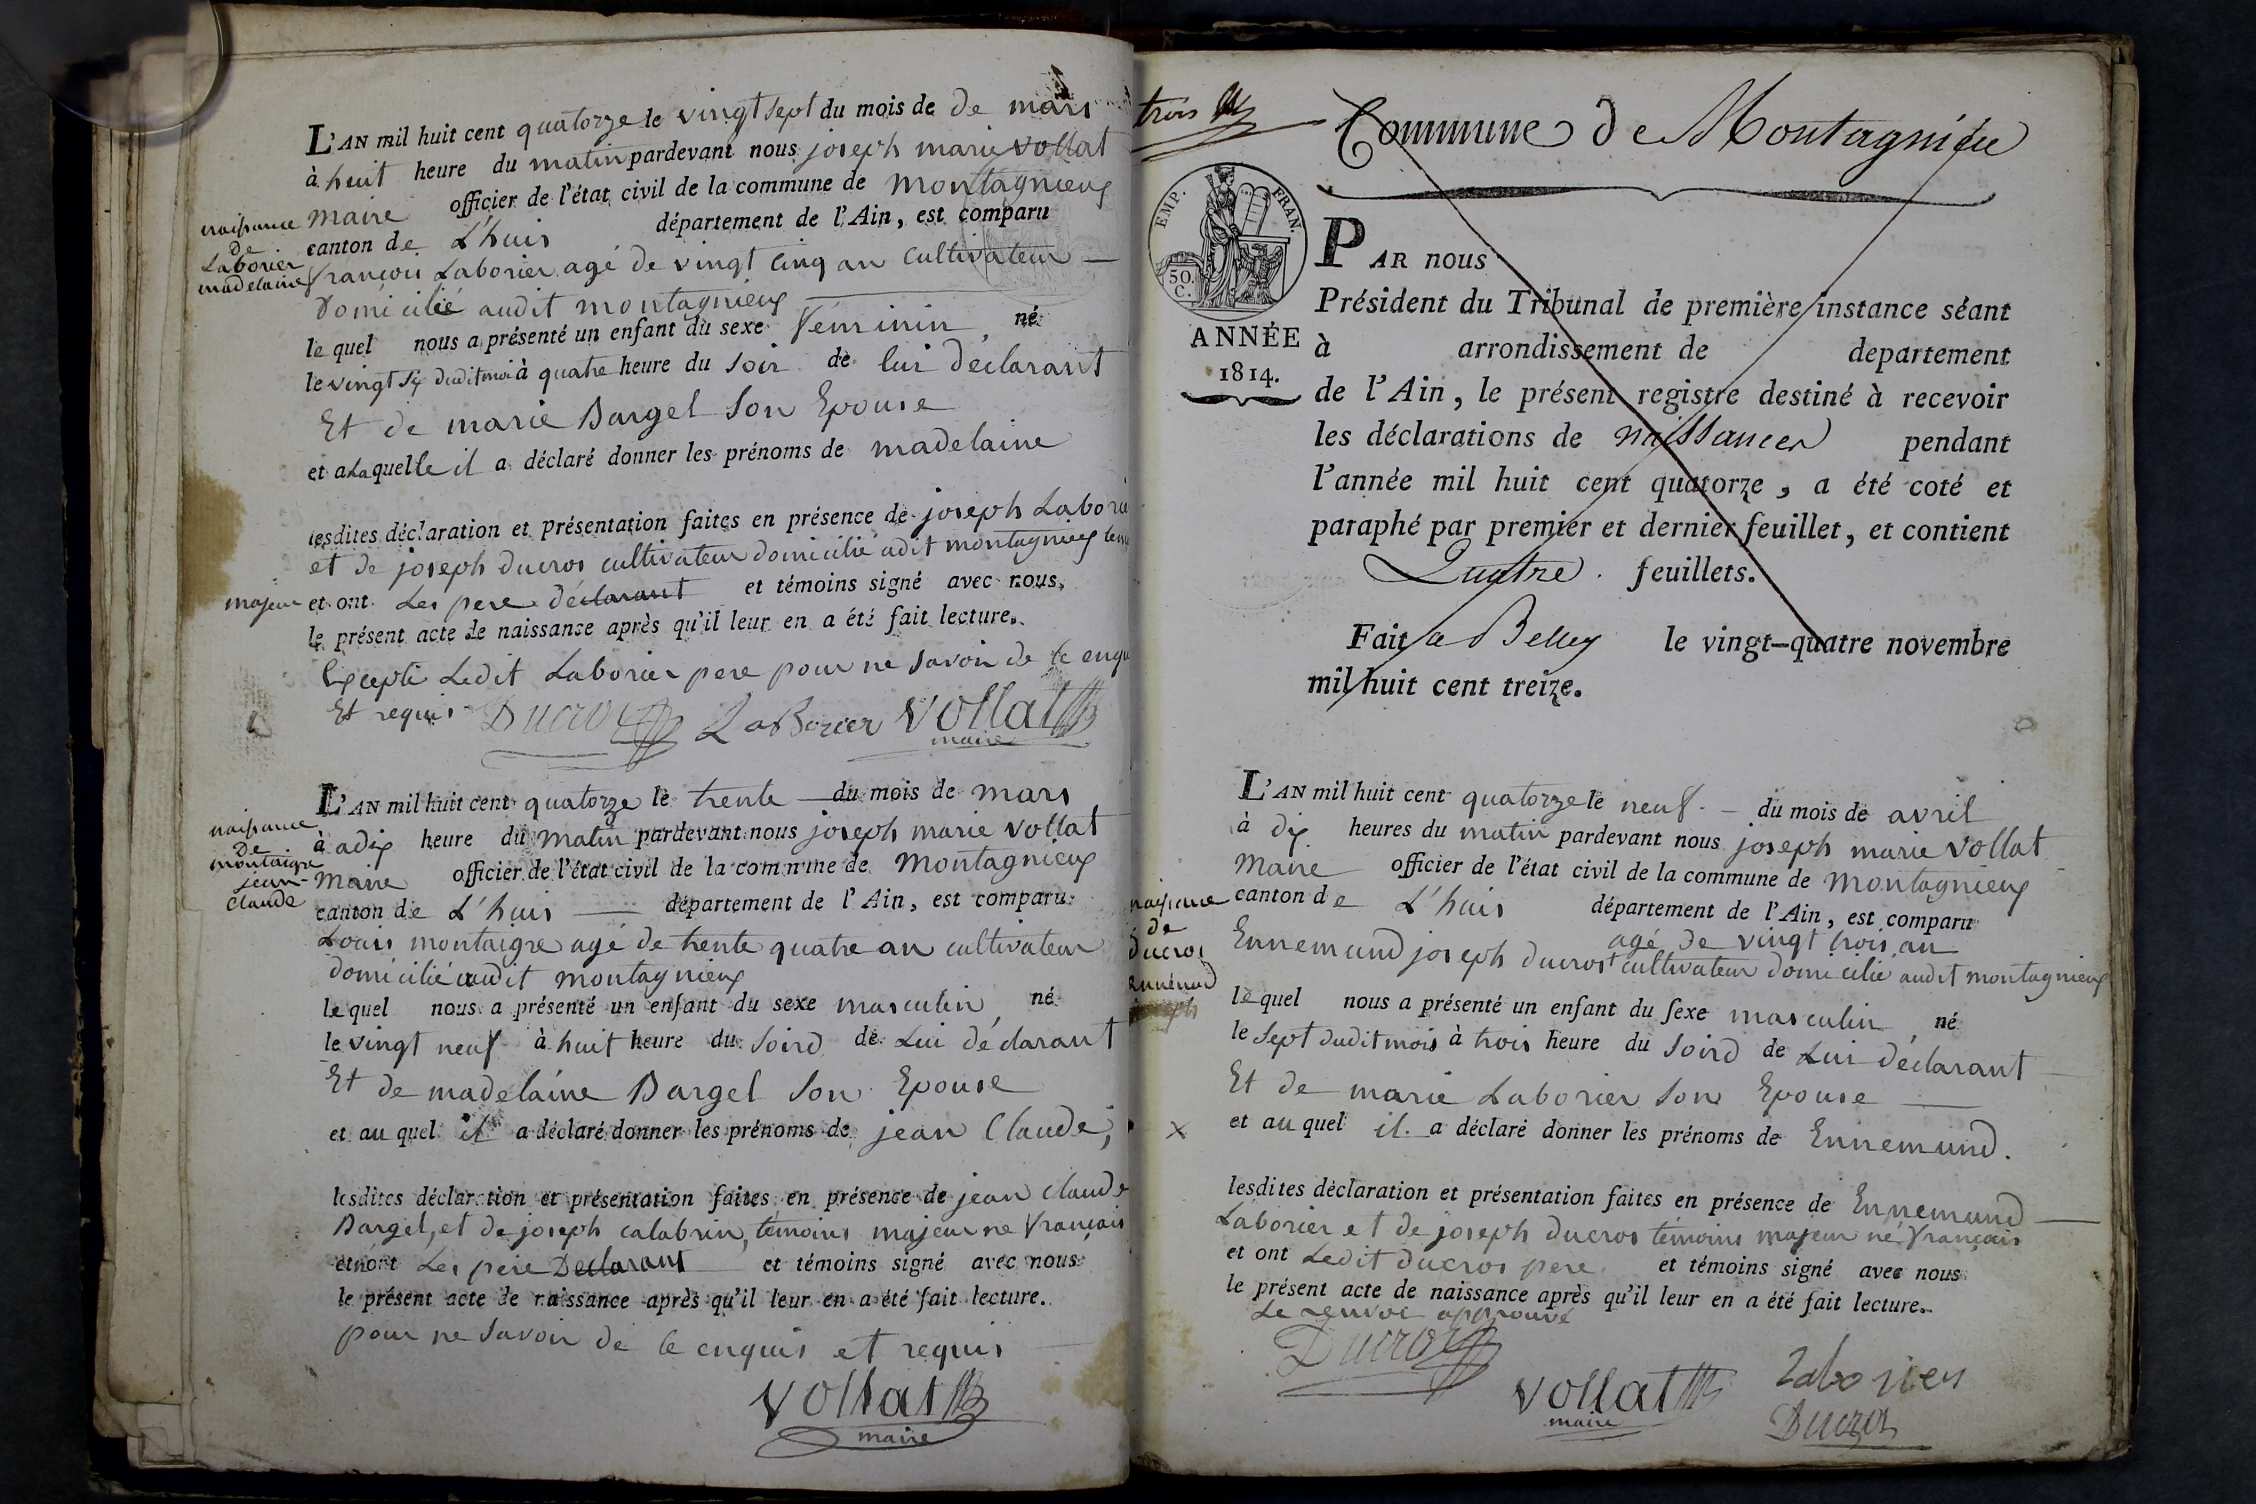 L'AN mil huit cent quatorze le vingt sept du mois de de mars
à huit heure du matin pardevant nous joseph marie vollat
maire officier de l'état civil de la commune de montagnieux
canton de L'huis département de l'Ain, est comparu
françois Laborier agé de vingt cinq an cultivateur
domicilié audit montagnieux
le quel nous a présenté un enfant du sexe féminin, né
le vingt six dudit moi à quatre heure du soir de lui déclarant
Et de marie Bargel son Epouse
et a La quelle il a déclaré donner les prénoms de madelaine
naissance
de
Laborier
madelaine
lesdites déclaration et présentation faites en présence de joseph Labori
et de joseph ducros cultivateur domicilié adit montagnieux
majeur et ont Les pere déclarant et témoins signé avec nous,
le présent acte de naissance après qu'il leur en a été fait lecture.
Excepté Ledit Laborier pere pour ne savoir de ce enqu
Et requis Ducros LaBorier vollat
maire
L'AN mil huit cent quatorze le trente du mois de mars
à adix heure du matin pardevant nous joseph marie vollat
maire officier de l'état civil de la commune de Montagnieux
canton de L'huis département de l'Ain, est comparu
Louis montaigre agé de trente quatre an cultivateur
domicilié audit montagnieux
le quel nous a présenté un enfant du sexe masculin, né
le vingt neuf à huit heure du soird de Lui déclarant
Et de madelaine Bargel son Epouse
et au quel il a déclaré donner les prénoms de jean Claude,
naissance
de
montaigre
jean-
claude
lesdites déclaration et présentation faites en présence de jean claude
Bargel, et de joseph calabrin, témoins majeur ne français
et nont Les pere Declarant et témoins signé avec nous
le présent acte de naissance après qu'il leur en a été fait lecture.
pour ne savoir de ce enquis et requis
vollat
maire
trois
Commune de Montagnieu
EMP. FRAN.
50.
C.
ANNÉE
1814.
PAR nous
Président du Tribunal de première instance séant
à arrondissement de departement
de l'Ain, le présent registre destiné à recevoir
les déclarations de naissances pendant
l'année mil huit cent quatorze, a été coté et
paraphé par premier et dernier feuillet, et contient
Quatre feuillets.
Fait a Belley le vingt-quatre novembre
mil huit cent treize.
L'AN mil huit cent quatorze le neuf du mois de avril
à dix heures du matin pardevant nous joseph marie vollat
Maire officier de l'état civil de la commune de montagnieux
canton de L'huis département de l'Ain, est comparu
agé de vingt trois an
Ennemund joseph ducros + cultivateur domicilié audit montagnieux
le quel nous a présenté un enfant du sexe masculin, né
le sept dudit mois à trois heure du soird de Lui déclarant
Et de marie Laborier son Epouse
X et au quel il a déclaré donner les prénoms de Ennemund.
naissance
de
ducros
ennemund
joseph
lesdites déclaration et présentation faites en présence de Ennemund
Laborier et de joseph ducros témoins majeur né français
et ont Ledit ducros pere et témoins signé avec nous
le présent acte de naissance après qu'il leur en a été fait lecture.
Le renvoi approuvé
Ducros
vollat
maire
Laborier
Ducros